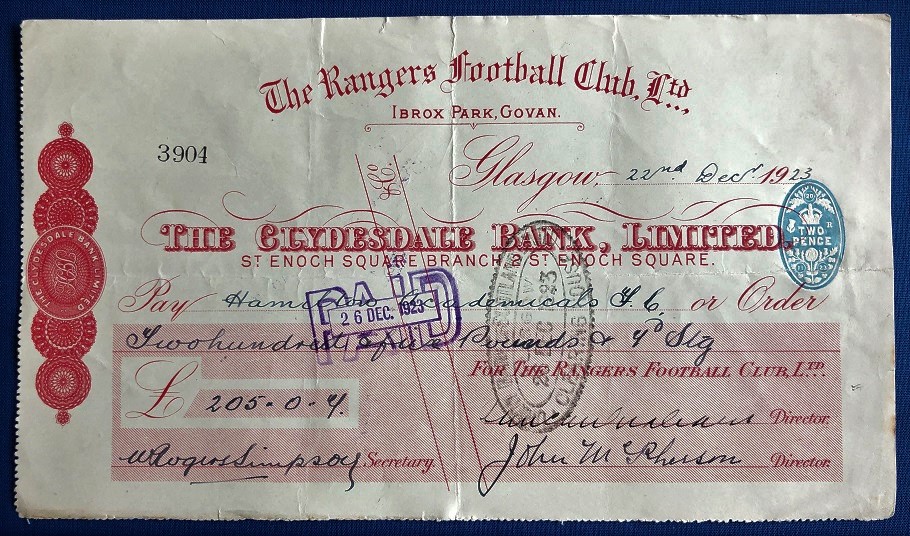 The Rangers Football Club, Ltd.,
IBROX PARK, GOVAN.
3904
& Co
Glasgow, 22nd Decr. 1923
TWO PENCE
THE CLYDESDALE BANK, LIMITED.
ST ENOCH SQUARE BRANCH, 2 ST ENOCH SQUARE.
THE CLYDESDALE BANK LIMITED
Pay Hamilton Academicals F.C. or Order
PAID
26 DEC. 1923
CLEARING HOUSE
Twohundred & five Pounds & 4d Stg
FOR THE RANGERS FOOTBALL CLUB, LTD.
£ 205-0-4.
Director.
W Rogers Simpson Secretary.
John McPherson Director.